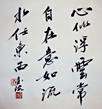 心似浮雲常
自在意如流
水任東西